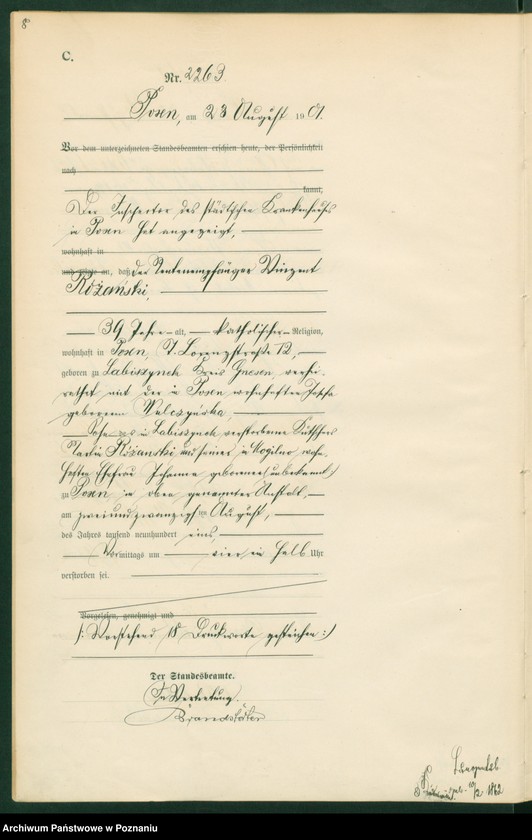 8
C.
Nr. 2263.
Posen, am 23 August 1901.
Vor dem unterzeichneten Standesbeamten erschien heute, der Persönlichkeit
nach
kannt,
Der Inspector des städtischen Krankenhauses
in Posen hat angezeigt,
wohnhaft in
und zeigte an, daß der Rentenempfänger Vinzent
Różański,
39 Jahre alt, katholischer Religion,
wohnhaft in Posen, St. Lorenzstraße 12,
geboren zu Labischin Kreis Gnesen, verhei-
rathet mit der in Posen wohnhaften Josepha
geborenen
Sohn des in Labischin verstorbenen Kutschers
Różański und seiner in Mogilno wohn-
haften Ehefrau Johanna geborenen (unbekannt)
zu Posen in oben genannter Anstalt,
am zweiundzwanzigsten August,
des Jahres tausend neunhundert eins,
Vormittags um vier ein halb Uhr
verstorben sei.
Vorgelesen, genehmigt und
/: Vorstehend 18 Druckworte gestrichen :/
Der Standesbeamte.
In Vertretung.
Brandstäter
1862
Archiwum Państwowe w Poznaniu